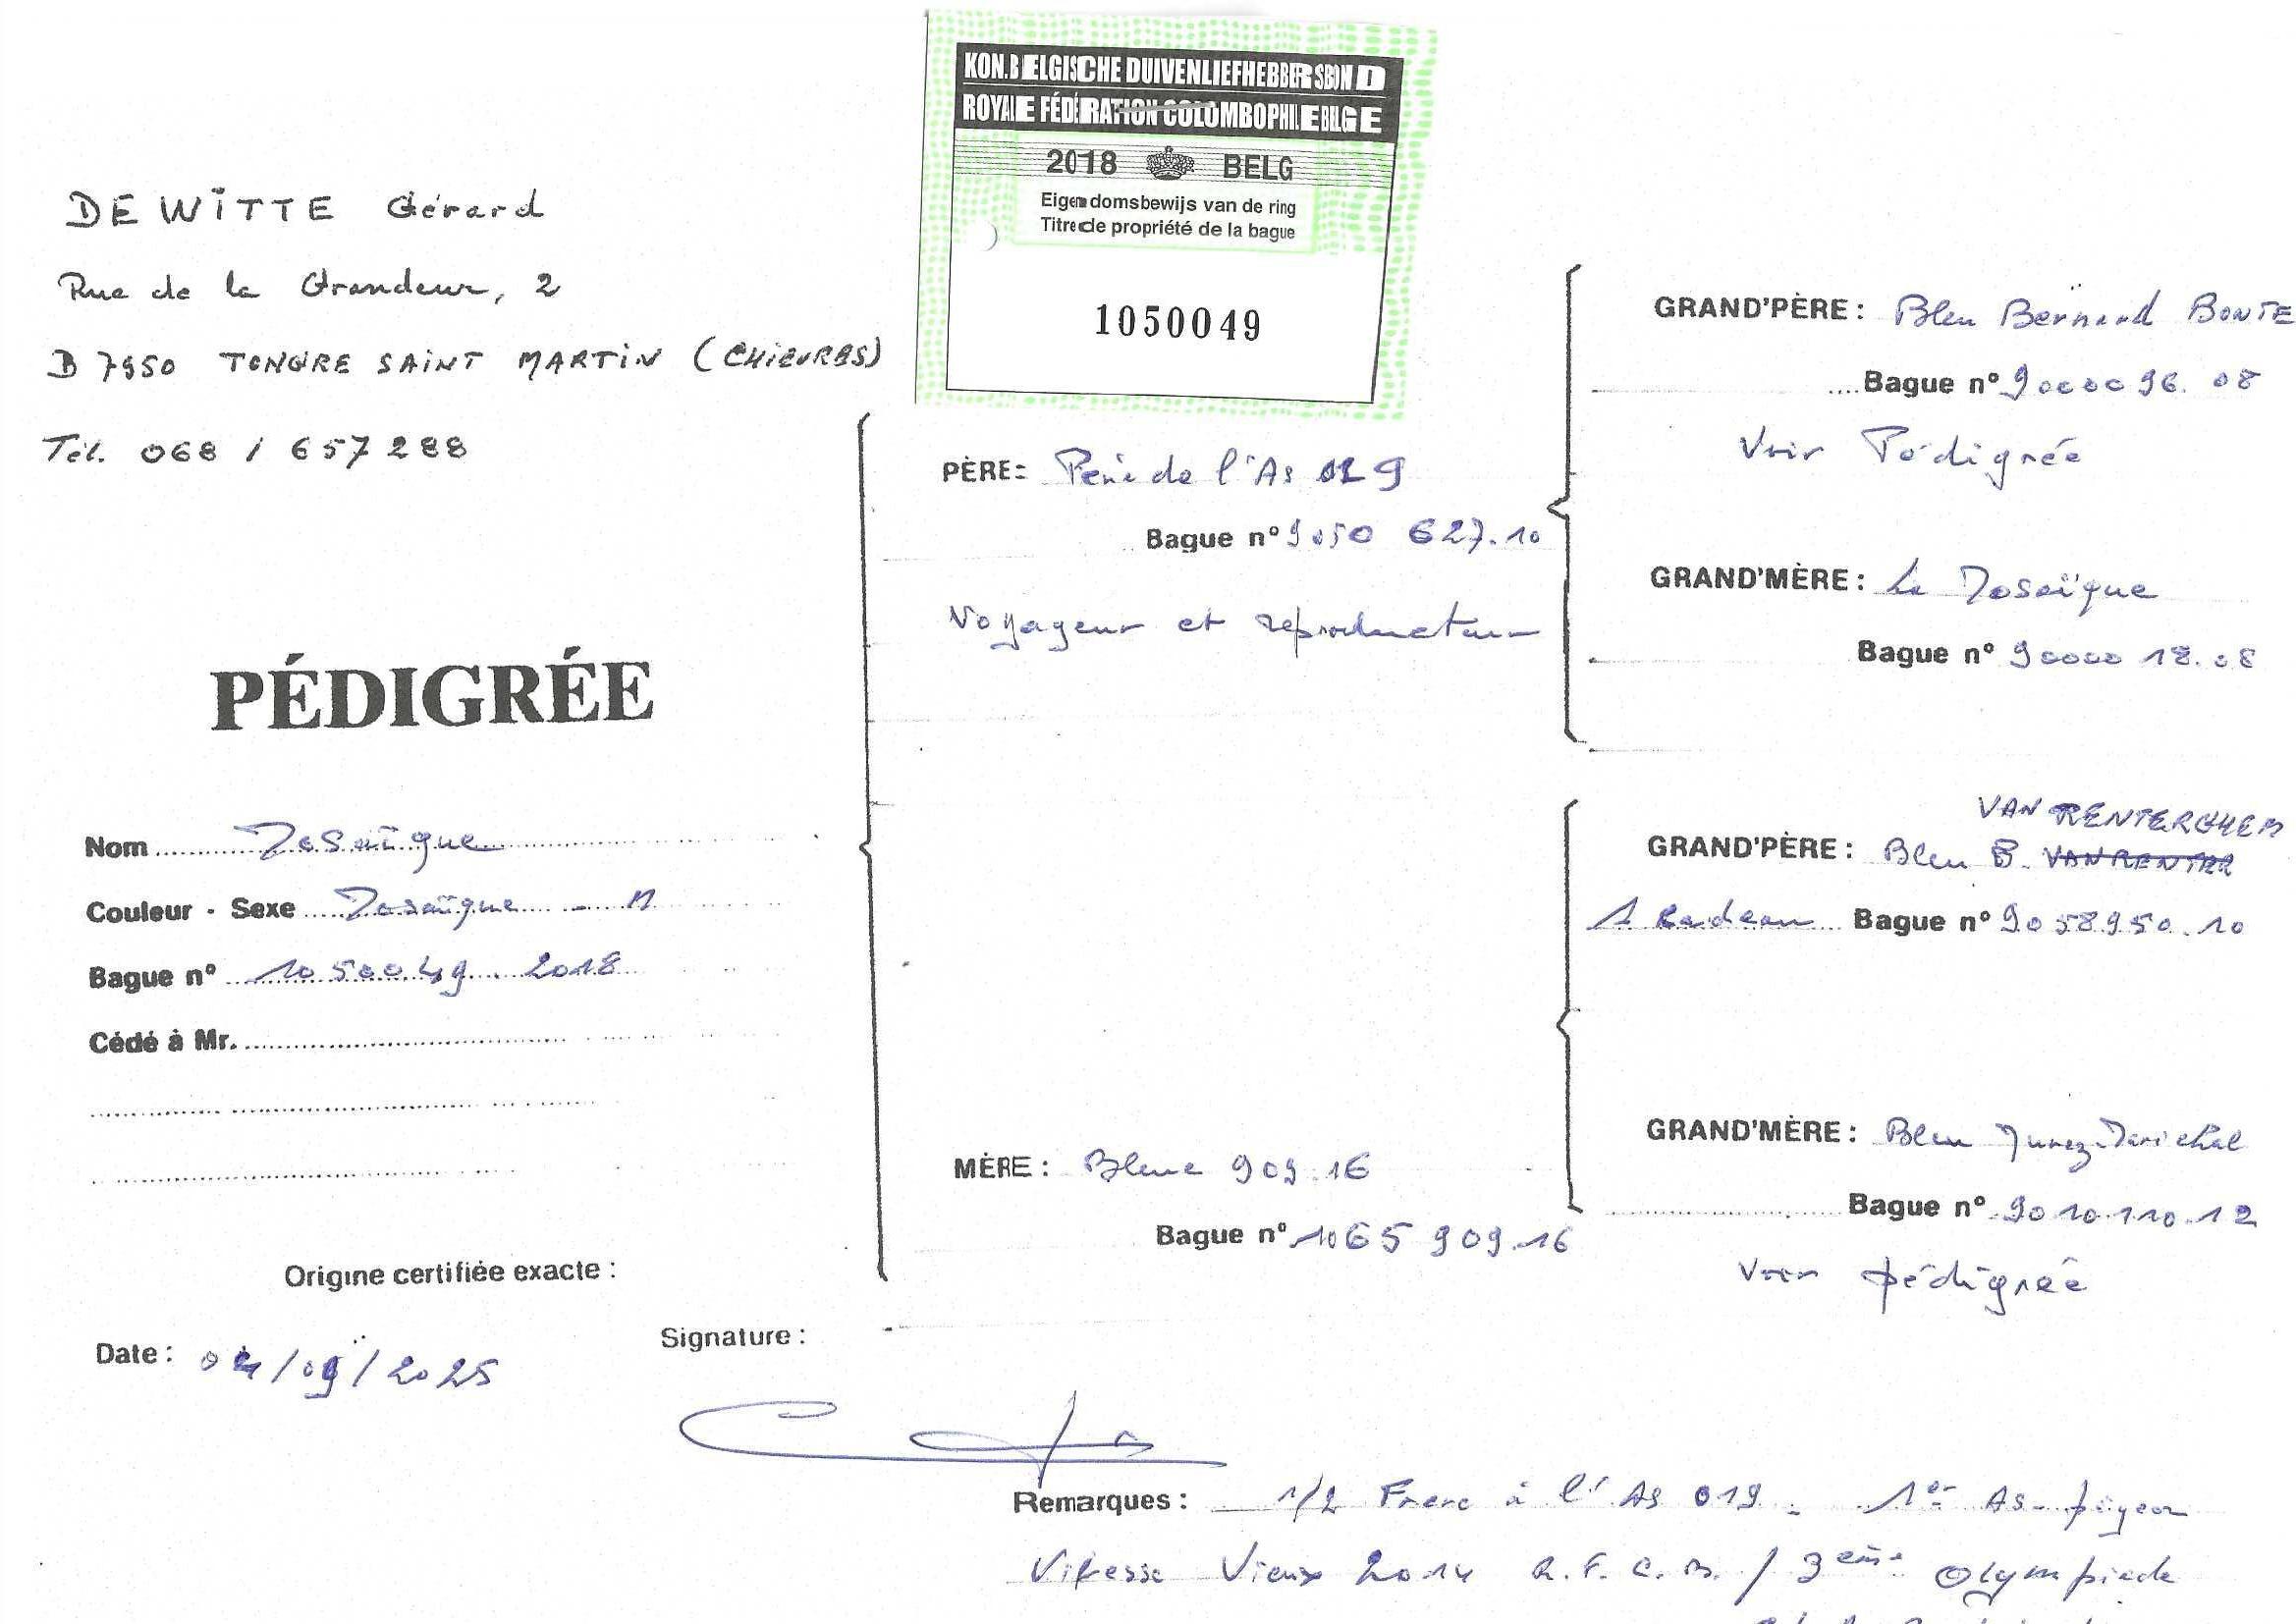 KON.BELGISCHE DUIVENLIEFHEBBERSBOND
ROYALE FÉDÉRATION COLOMBOPHILE BELGE
2018 BELG
Eigendomsbewijs van de ring
Titre de propriété de la bague
1050049
DE WITTE Gérard
Rue de la Grandeur, 2
B 7950 TONGRE SAINT MARTIN (CHIEVRES)
Tél. 068 / 657 288
PÉDIGRÉE
Nom Mosaïque
Couleur - Sexe Mosaïque - M
Bague n° 1050049 . 2018
Cédé à Mr.
Origine certifiée exacte :
Date : 04/09/2025
Signature :
PÈRE : Père de l'As 019
Bague n° 9050 627.10
Voyageur et reproducteur
MÈRE : Bleue 909.16
Bague n° 1065 909.16
GRAND'PÈRE : Bleu Bernard BONTE
Bague n° 9000096.08
Voir Pédigrée
GRAND'MÈRE : La Mosaïque
Bague n° 9000018.08
VAN RENTERGHEM
GRAND'PÈRE : Bleu B. VAN RENTER
Bague n° 9058950.10
GRAND'MÈRE : Bleu
Bague n° 9010110.12
Voir pédigrée
Remarques : 1/2 Frere à l'As 019 - 1er As-pigeon
Vitesse Vieux 2014 R.F.C.B. / 3ème Olympiade